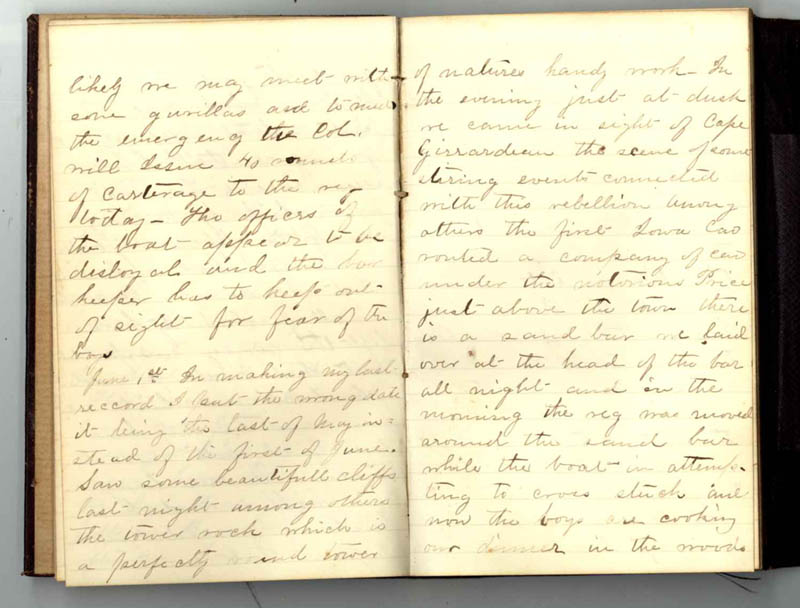 likely we may meet with
some gurillas and to meet
the emergency the Col.
will Issue 40 rounds
of carterage to the reg
today – The officers of
the boat appear to be
disloyal and the bar
keeper has to keep out
of sight for fear of the
boys
June 1st In making my last
reccord I put the wrong date
it being the last of May in=
stead of the first of June.
Saw some beautifull cliffs
last night among others
the tower rock which is
a perfectly round tower
of natures handy work – In
the evening just at dusk
we came in sight of Cape
Girrardeau the scene of some
stiring events connected
with this rebellion among
others the first Iowa Cav
routed a company of cav
under the notorious Price
just above the town there
is a sand bar we laid
over at the head of the bar
all night and in the
morning the reg was moved
around the sand bar
while the boat in attemp-
ting to cross stuck and
now the boys are cooking
our dinner in the woods